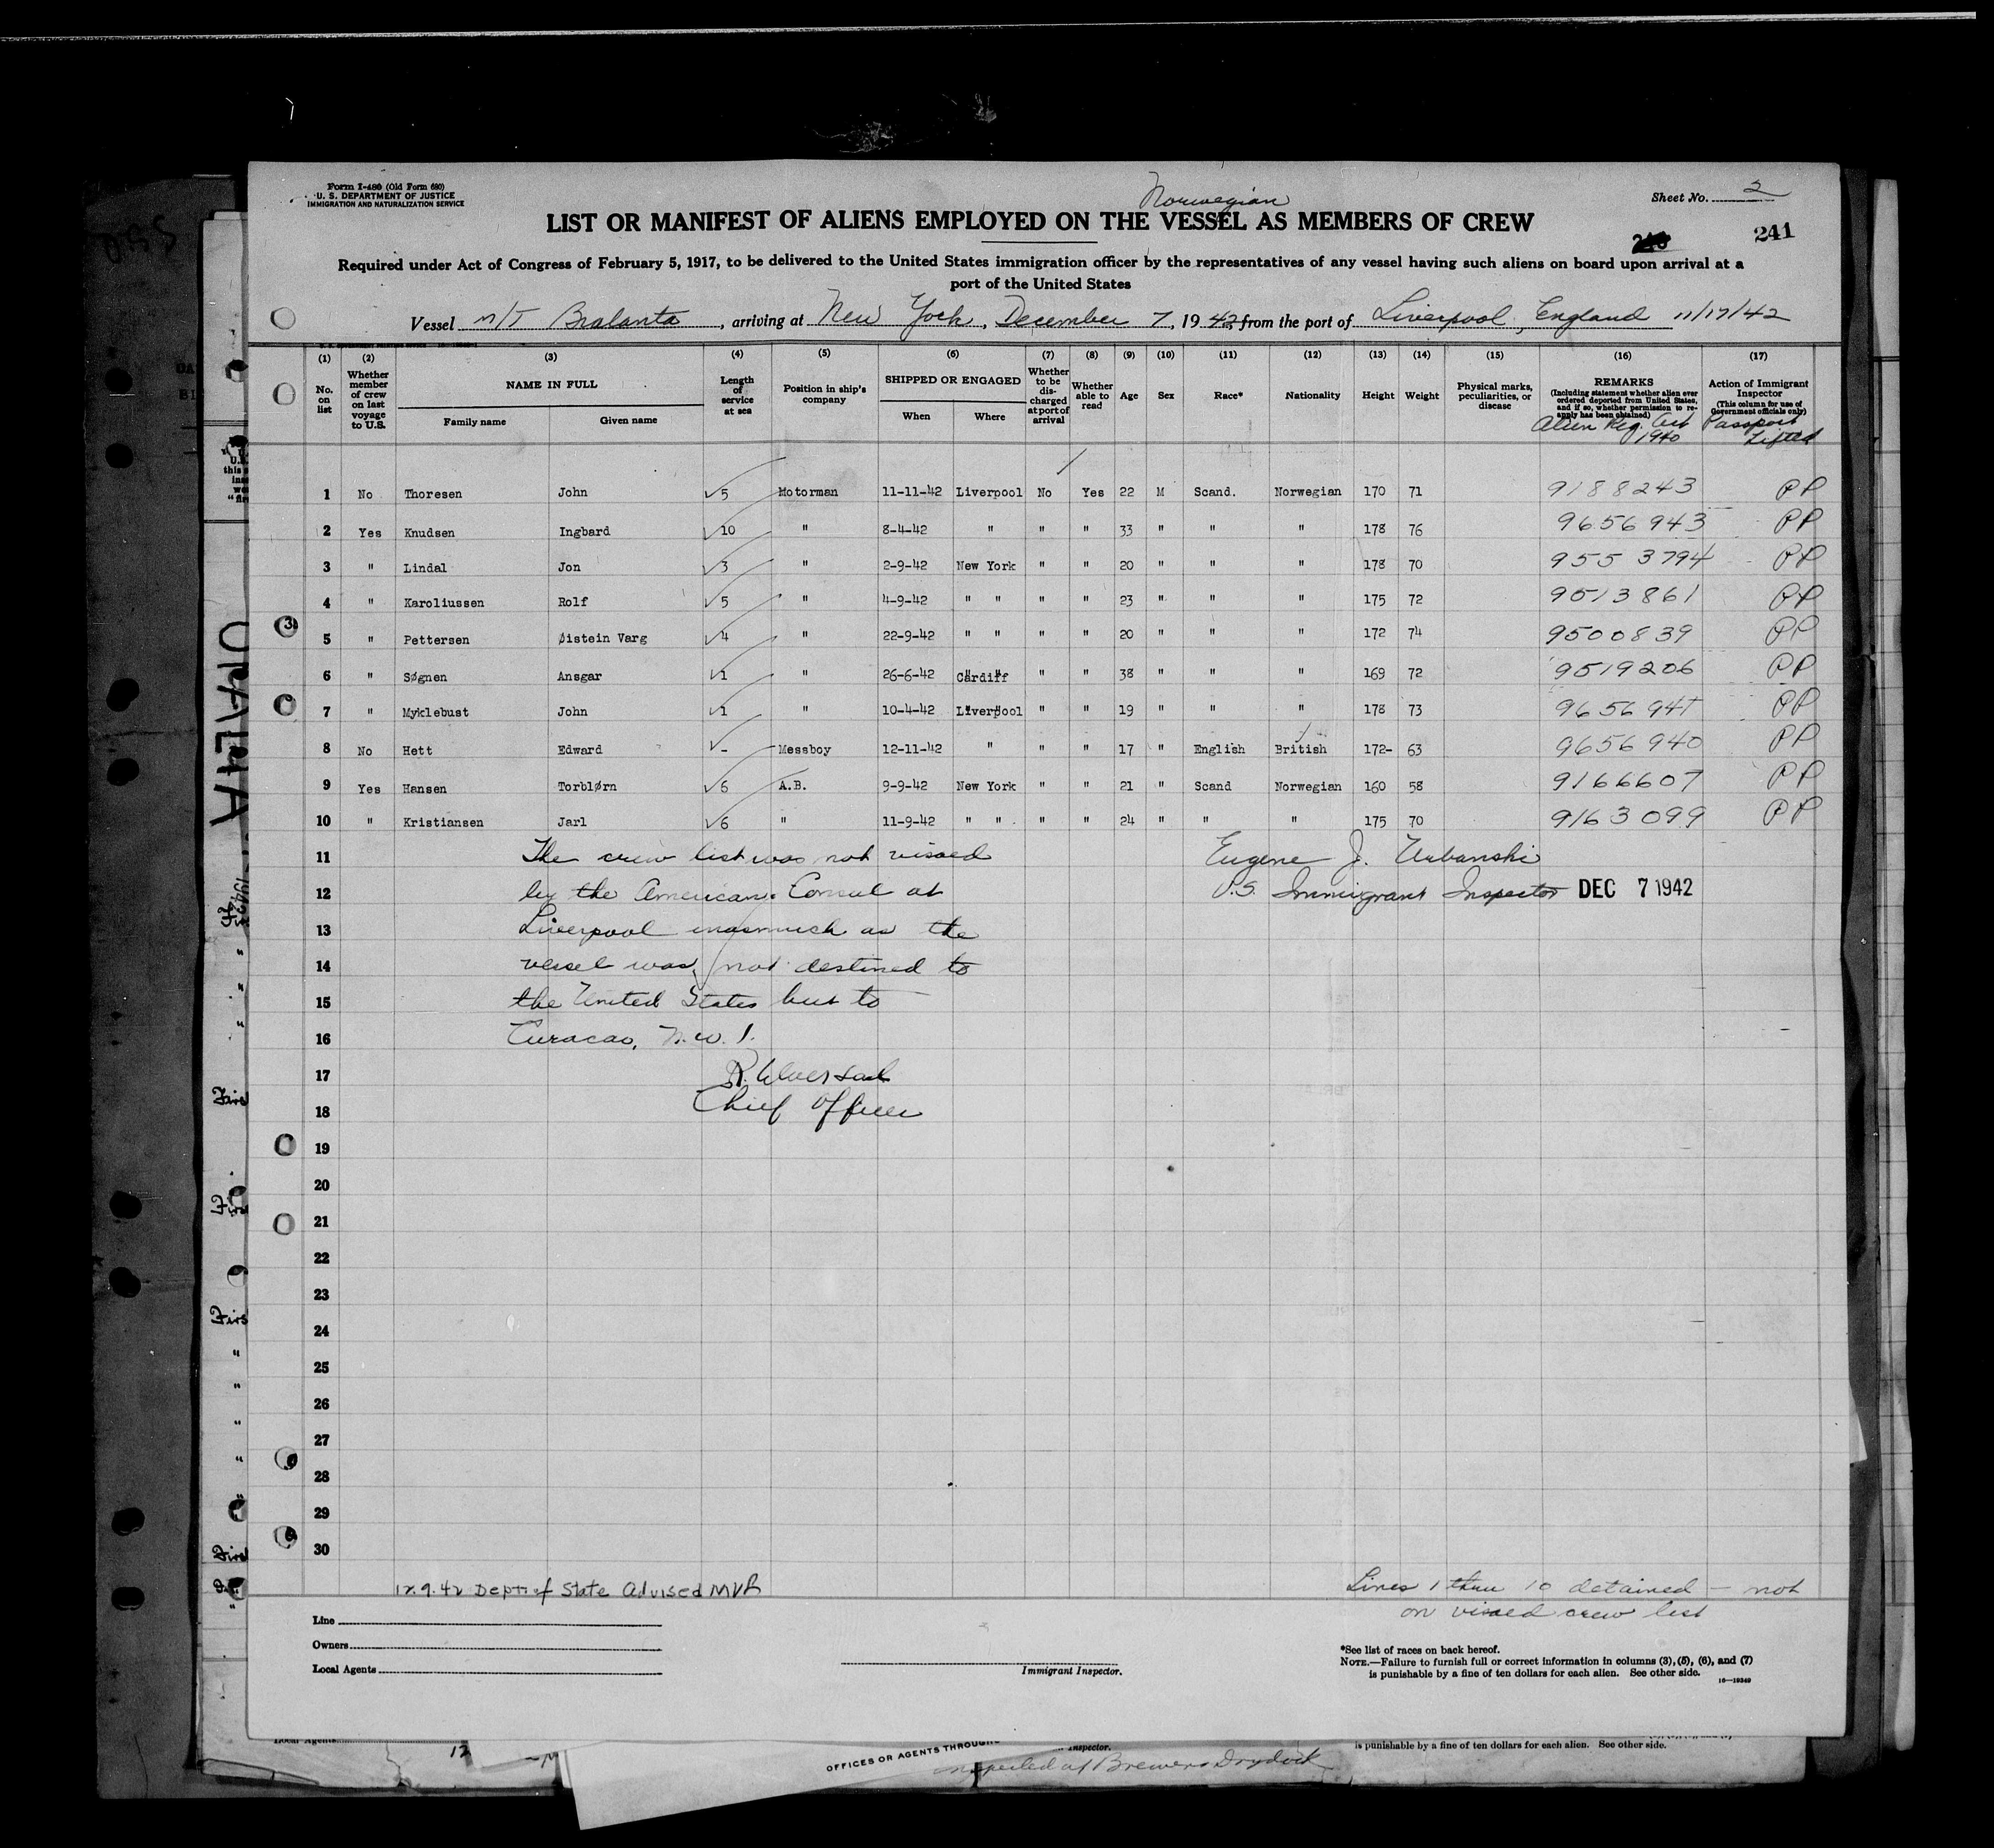 Form I-480 (Old Form 680)
U. S. DEPARTMENT OF JUSTICE
IMMIGRATION AND NATURALIZATION SERVICE
Sheet No. 2
Norwegian
LIST OR MANIFEST OF ALIENS EMPLOYED ON THE VESSEL AS MEMBERS OF CREW
241
Required under Act of Congress of February 5, 1917, to be delivered to the United States immigration officer by the representatives of any vessel having such aliens on board upon arrival at a
port of the United States
Vessel M/T Bralanta, arriving at New York, December 7, 1942, from the port of Liverpool, England 11/17/42
(1) (2) (3) (4) (5) (6) (7) (8) (9) (10) (11) (12) (13) (14) (15) (16) (17)
No. on list
Whether member of crew on last voyage to U.S.
NAME IN FULL
Family name
Given name
Length of service at sea
Position in ship's company
SHIPPED OR ENGAGED
When
Where
Whether to be discharged at port of arrival
Whether able to read
Age
Sex
Race*
Nationality
Height
Weight
Physical marks, peculiarities, or disease
REMARKS
(Including statement whether alien ever ordered deported from United States, and if so, whether permission to reapply has been obtained)
Alien Reg. Act 1940
Action of Immigrant Inspector
(This column for use of Government officials only)
Passport Lifted
1 No Thoresen John 5 Motorman 11-11-42 Liverpool No Yes 22 M Scand. Norwegian 170 71 9188243 PP
2 Yes Knudsen Ingbard 10 " 8-4-42 " " " 33 " " " 178 76 9656943 PP
3 " Lindal Jon 3 " 2-9-42 New York " " 20 " " " 178 70 9553794 PP
4 " Karoliussen Rolf 5 " 4-9-42 " " " " 23 " " " 175 72 9513861 PP
5 " Pettersen Øistein Varg 4 " 22-9-42 " " " " 20 " " " 172 74 9500839 PP
6 " Søgnen Ansgar 1 " 26-6-42 Cardiff " " 38 " " " 169 72 9519206 PP
7 " Myklebust John 1 " 10-4-42 Liverpool " " 19 " " " 178 73 PP
8 No Hett Edward - Messboy 12-11-42 " " " 17 " English British 172- 63 9656940 PP
9 Yes Hansen Torblørn 6 A.B. 9-9-42 New York " " 21 " Scand Norwegian 160 58 9166607 PP
10 " Kristiansen Jarl 6 " 11-9-42 " " " " 24 " " " 175 70 9163099 PP
11 The crew list was not visaed Eugene J. Urbanski
12 by the American Consul at U.S. Immigrant Inspector DEC 7 1942
13 Liverpool inasmuch as the
14 vessel was not destined to
15 the United States but to
16 Curacao, N.W.I.
17
18 Chief Officer
19
20
21
22
23
24
25
26
27
28
29
30
12.9.42 Dept of State Advised MVB
Lines 1 thru 10 detained - not
on visaed crew list
Line
Owners
Local Agents
Immigrant Inspector.
*See list of races on back hereof.
NOTE.—Failure to furnish full or correct information in columns (3), (5), (6), and (7)
is punishable by a fine of ten dollars for each alien. See other side.
16—19349
Local Agents
12
OFFICES OR AGENTS THROUGH
Inspector.
is punishable by a fine of ten dollars for each alien. See other side.
Inspected at Brewers Drydock